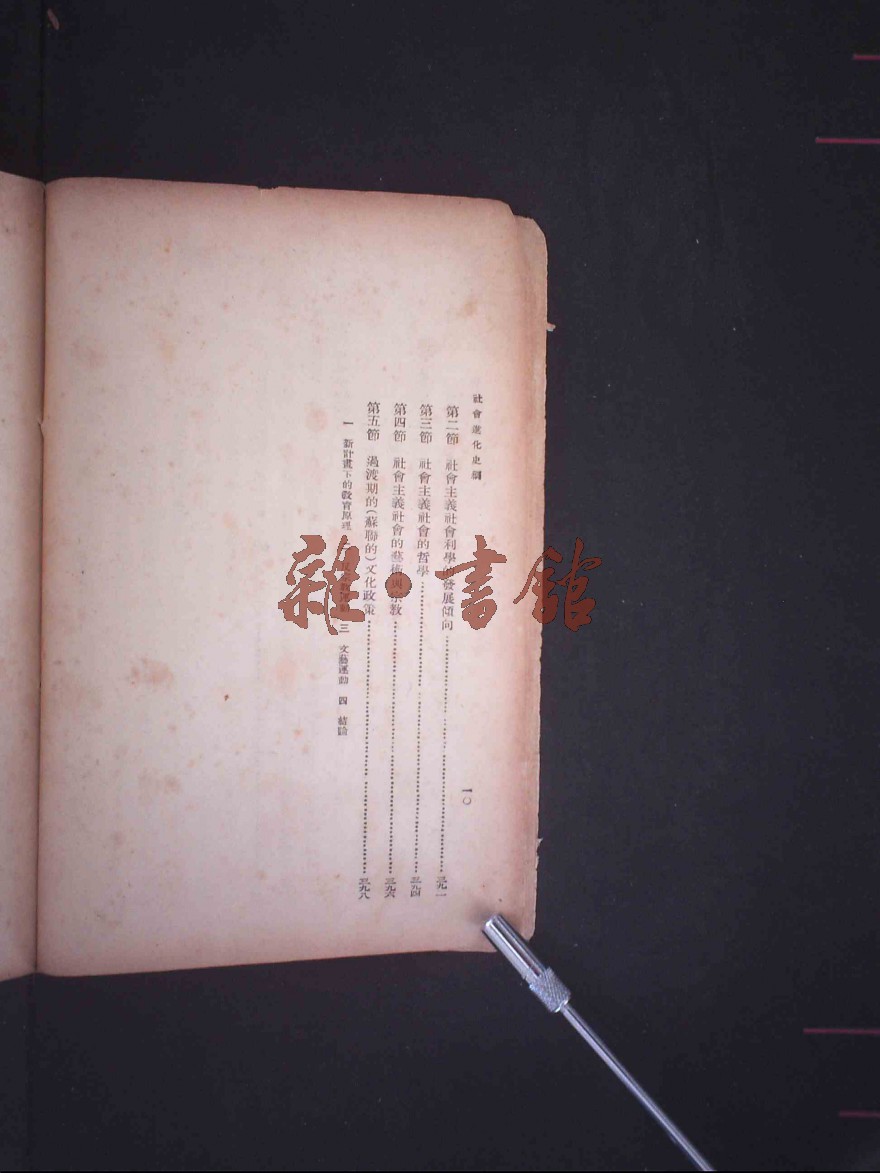 社會進化史綱
一〇
第二節 社會主義社會科學的發展傾向……三九一
第三節 社會主義社會的哲學……三九四
第四節 社會主義社會的藝術與宗教……三九六
第五節 過渡期的（蘇聯的）文化政策……三九八
一 新計畫下的教育原理 三 文藝運動 四 結論
雜·書館